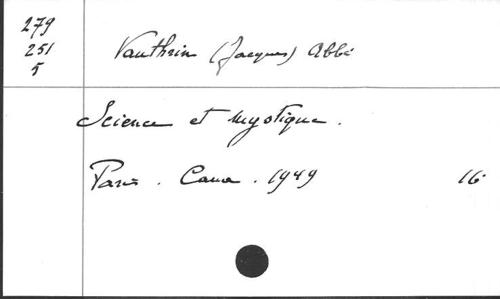 279
251
5
Vauthrin (Jacques) Abbé
Science et mystique.
Paris. Cana. 1949 16°